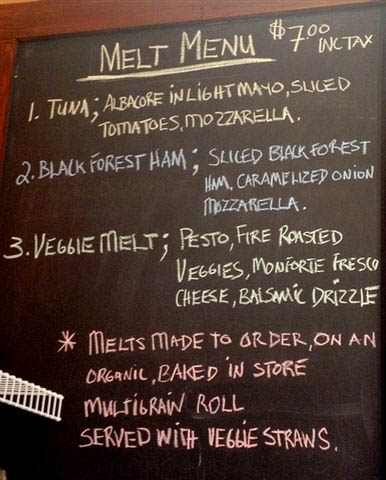 MELT MENU $7.00
INC TAX
1. TUNA; ALBACORE IN LIGHT MAYO, SLICED
TOMATOES, MOZZARELLA.
2. BLACK FOREST HAM; SLICED BLACK FOREST
HAM, CARAMELIZED ONION
MOZZARELLA.
3. VEGGIE MELT; PESTO, FIRE ROASTED
VEGGIES, MONFORTE FRESCO
CHEESE, BALSAMIC DRIZZLE
* MELTS MADE TO ORDER, ON AN
ORGANIC, BAKED IN STORE
MULTIGRAIN ROLL
SERVED WITH VEGGIE STRAWS.